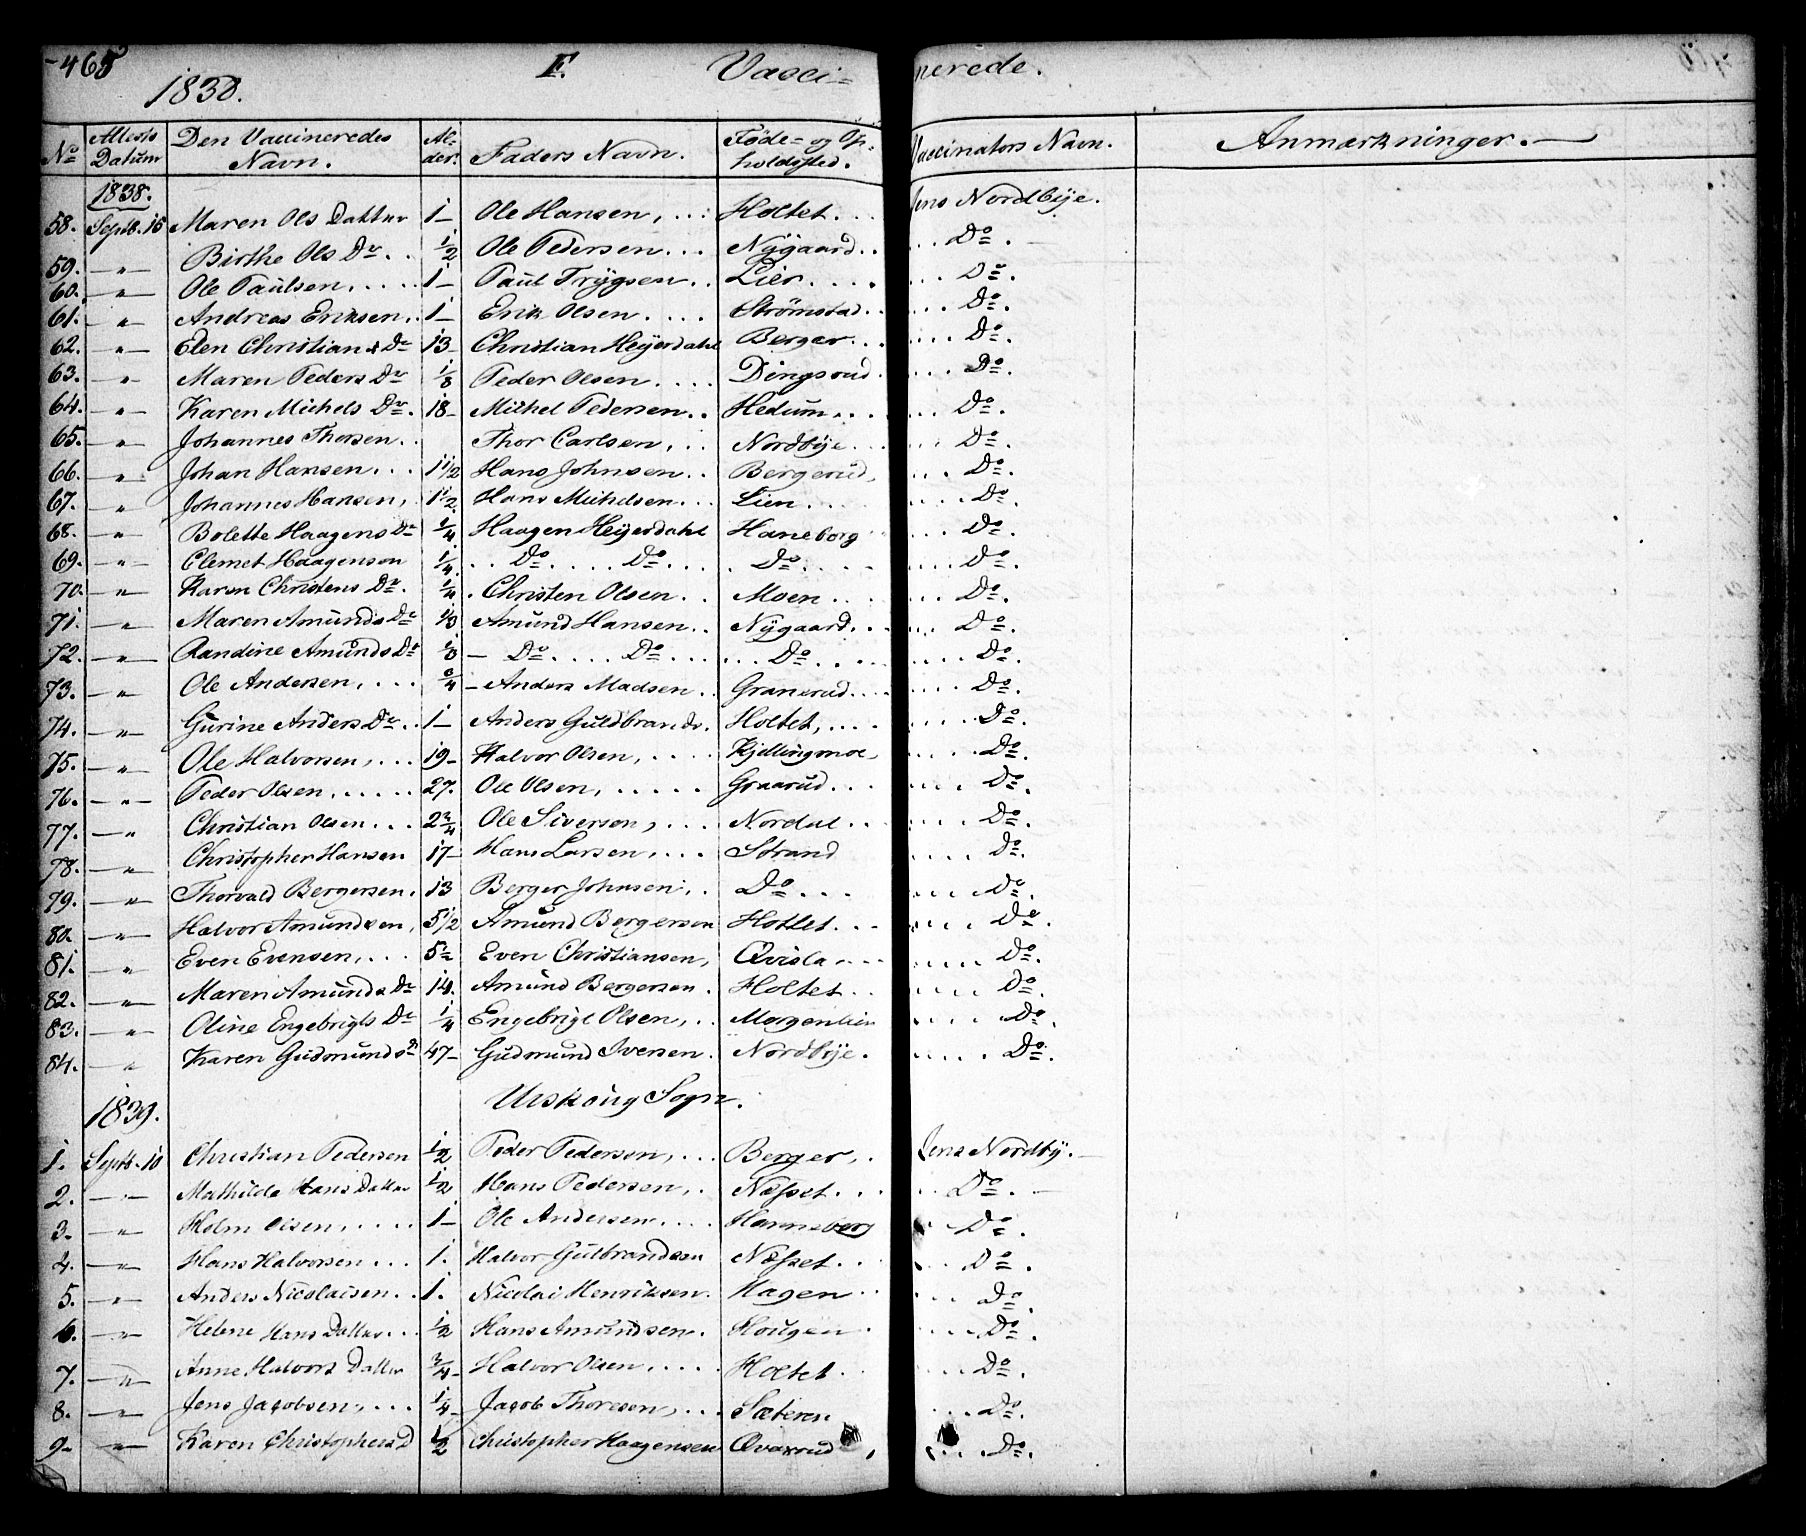 -465 F. Vacci= nerede.
1838.
No Attests Datum Den Vaccineredes Navn. Al-der. Faders Navn. Føde- og Op-holdssted. Vaccinators Navn. Anmærkninger.
1838.
58. Septb. 16 Maren Ols Datter 1 Ole Hansen, Holtet. Jens Nordbye.
59. " Birthe Ols Dr. 1/2 Ole Pedersen Nÿgaard Do.
60. " Ole Paulsen 1 Paul Trÿgsen Lier Do.
61. " Andreas Eriksen 1 Erik Olsen Strømstad Do.
62. " Elen Christians Dr 13 Christian Heÿerdahl Berger Do.
63. " Maren Peders Dr 1/8 Peder Olsen Dingsrud Do.
64. " Karen Michels Dr. 18 Michel Pedersen Hedum Do.
65. " Johannes Thorsen Thor Carlsen, Nordbÿe Do.
66. " Johan Hansen 1 1/2 Hans Johnsen Bergerud Do.
67. " Johannes Hansen, 1 1/2 Hans Michelsen Lien Do.
68. " Bolette Haagens Dr 1/4 Haagen Heÿerdahl Haneborg Do.
69. " Clemet Haagenson 1/4 Do. Do. Do. Do.
70. " Karen Christens Dr. 1/4 Christen Olsen Moen Do.
71. " Maren Amunds Dr 1/3 Amund Hansen Nÿgaard Do.
72. " Randine Amunds Dr 1/3 Do. Do. Do. Do.
73. " Ole Andersen, 3/4 Anders Madsen Granerud Do.
74. " Gurine Anders Dr. 1 Anders Guldbrands. Holtet, Do.
75. " Ole Halvorsen, 19 Halvor Olsen, Kjellingmoe Do.
76. " Peder Olsen, 27. Ole Olsen, Graarud Do.
77. " Christian Olsen 2 3/4 Ole Siversen, Nordal Do.
78. " Christopher Hansen 17 Hans Larsen, Strand Do.
79. " Thorvald Bergersen. 13 Berger Johnsen, Do. Do.
80. " Halvor Amundsen, 5 1/2 Amund Bergerson Holtet Do.
81. " Even Evensen, 5 Even Christiansen, Qvisla Do.
82. " Maren Amunds Dr 14. Amund Bergersen. Holtet Do.
83. " Oline Engebrigts Dr 1/4 Engebrigt Olsen, Morgenlien Do.
84. " Karen Gudmunds 47 Gudmund Iversen. Nordbÿe. Do.
1839. Urskoug Sogn.
1. Septb. 10 Christian Pedersen 1/2 Peder Pedersen, Berger, Jens Nordby.
2. " Mathilde Hans Datter 1/2 Hans Pedersen, Næsset Do.
3. " Holm Olsen 1 Ole Andersen Hannsberg Do.
4. " Hans Halvorsen 1. Halvor Gulbrandsen Næsset Do.
5. " Anders Nicolaisen 1. Nicolai Henriksen. Hagen Do.
6. " Helene Hans Datter 1/2 Hans Amundsen. Hougen Do.
7. " Anne Halvors Datter 3/4 Halvor Olsen Holtet Do.
8. " Jens Jacobsen, 1/4 Jacob Thoresen, Sæteren Do.
9. " Karen Christophers D 1/2 Christopher Haagensen Qvarrud Do.